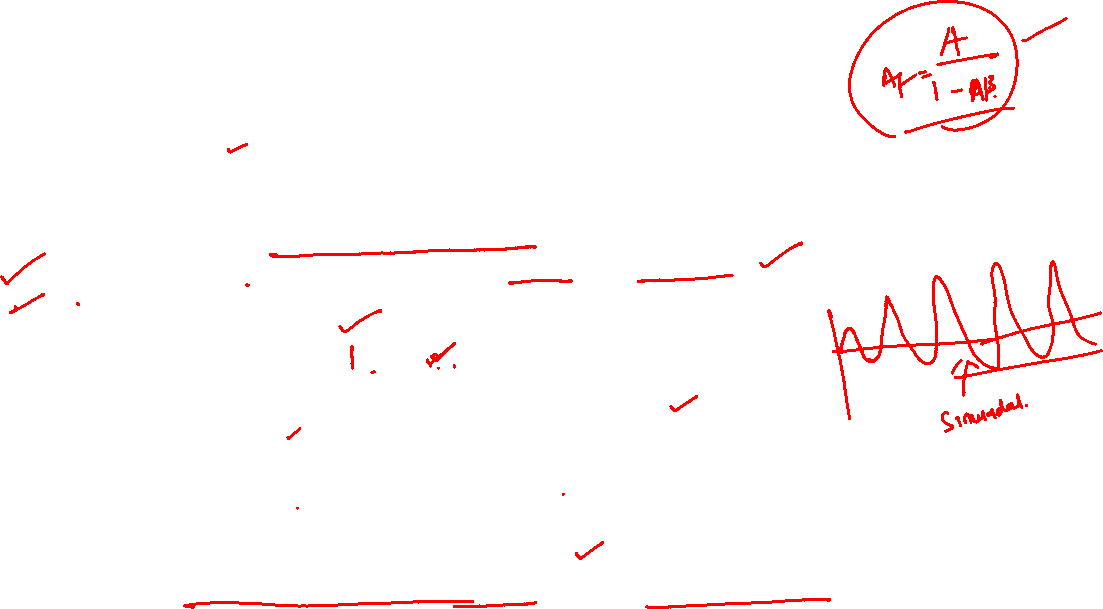 Af = A / 1 - Aβ
1.
Sinusoidal.